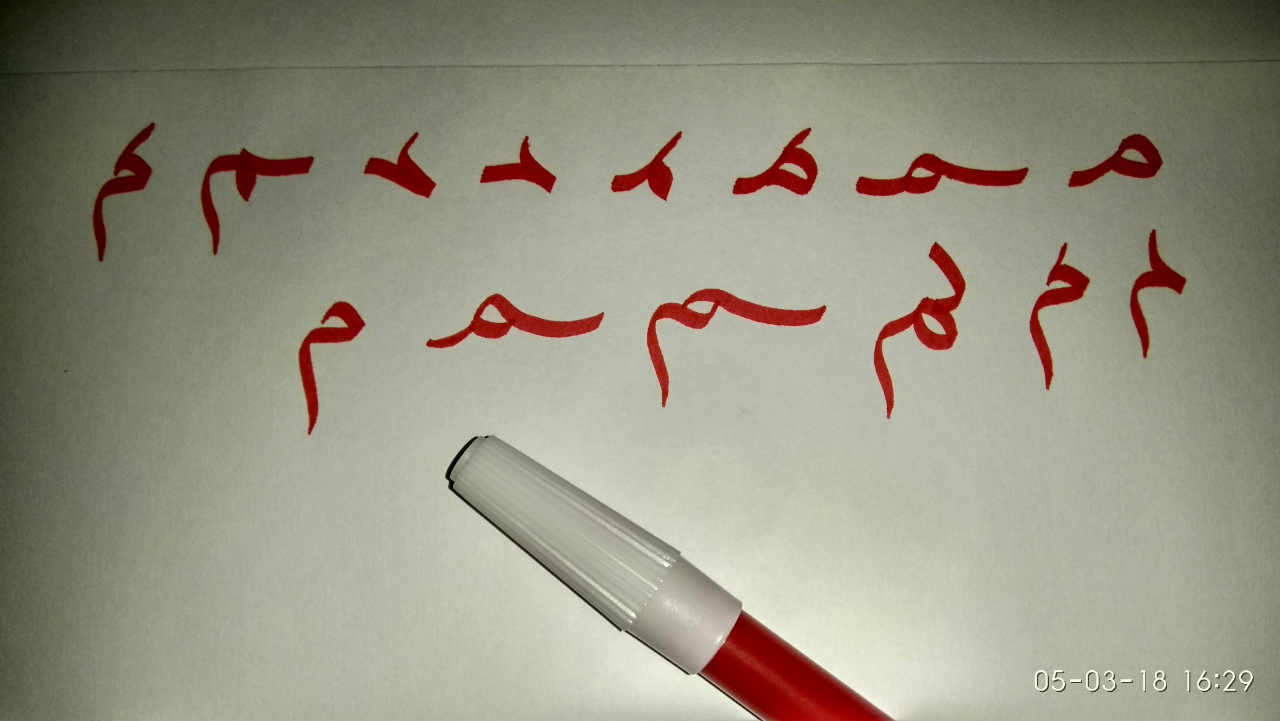 مـ ـمـ ـمـ ـمـ ـمـ ـمـ ـم ـم
ـم ـم ـم ـم ـمـ م
05-03-18 16:29